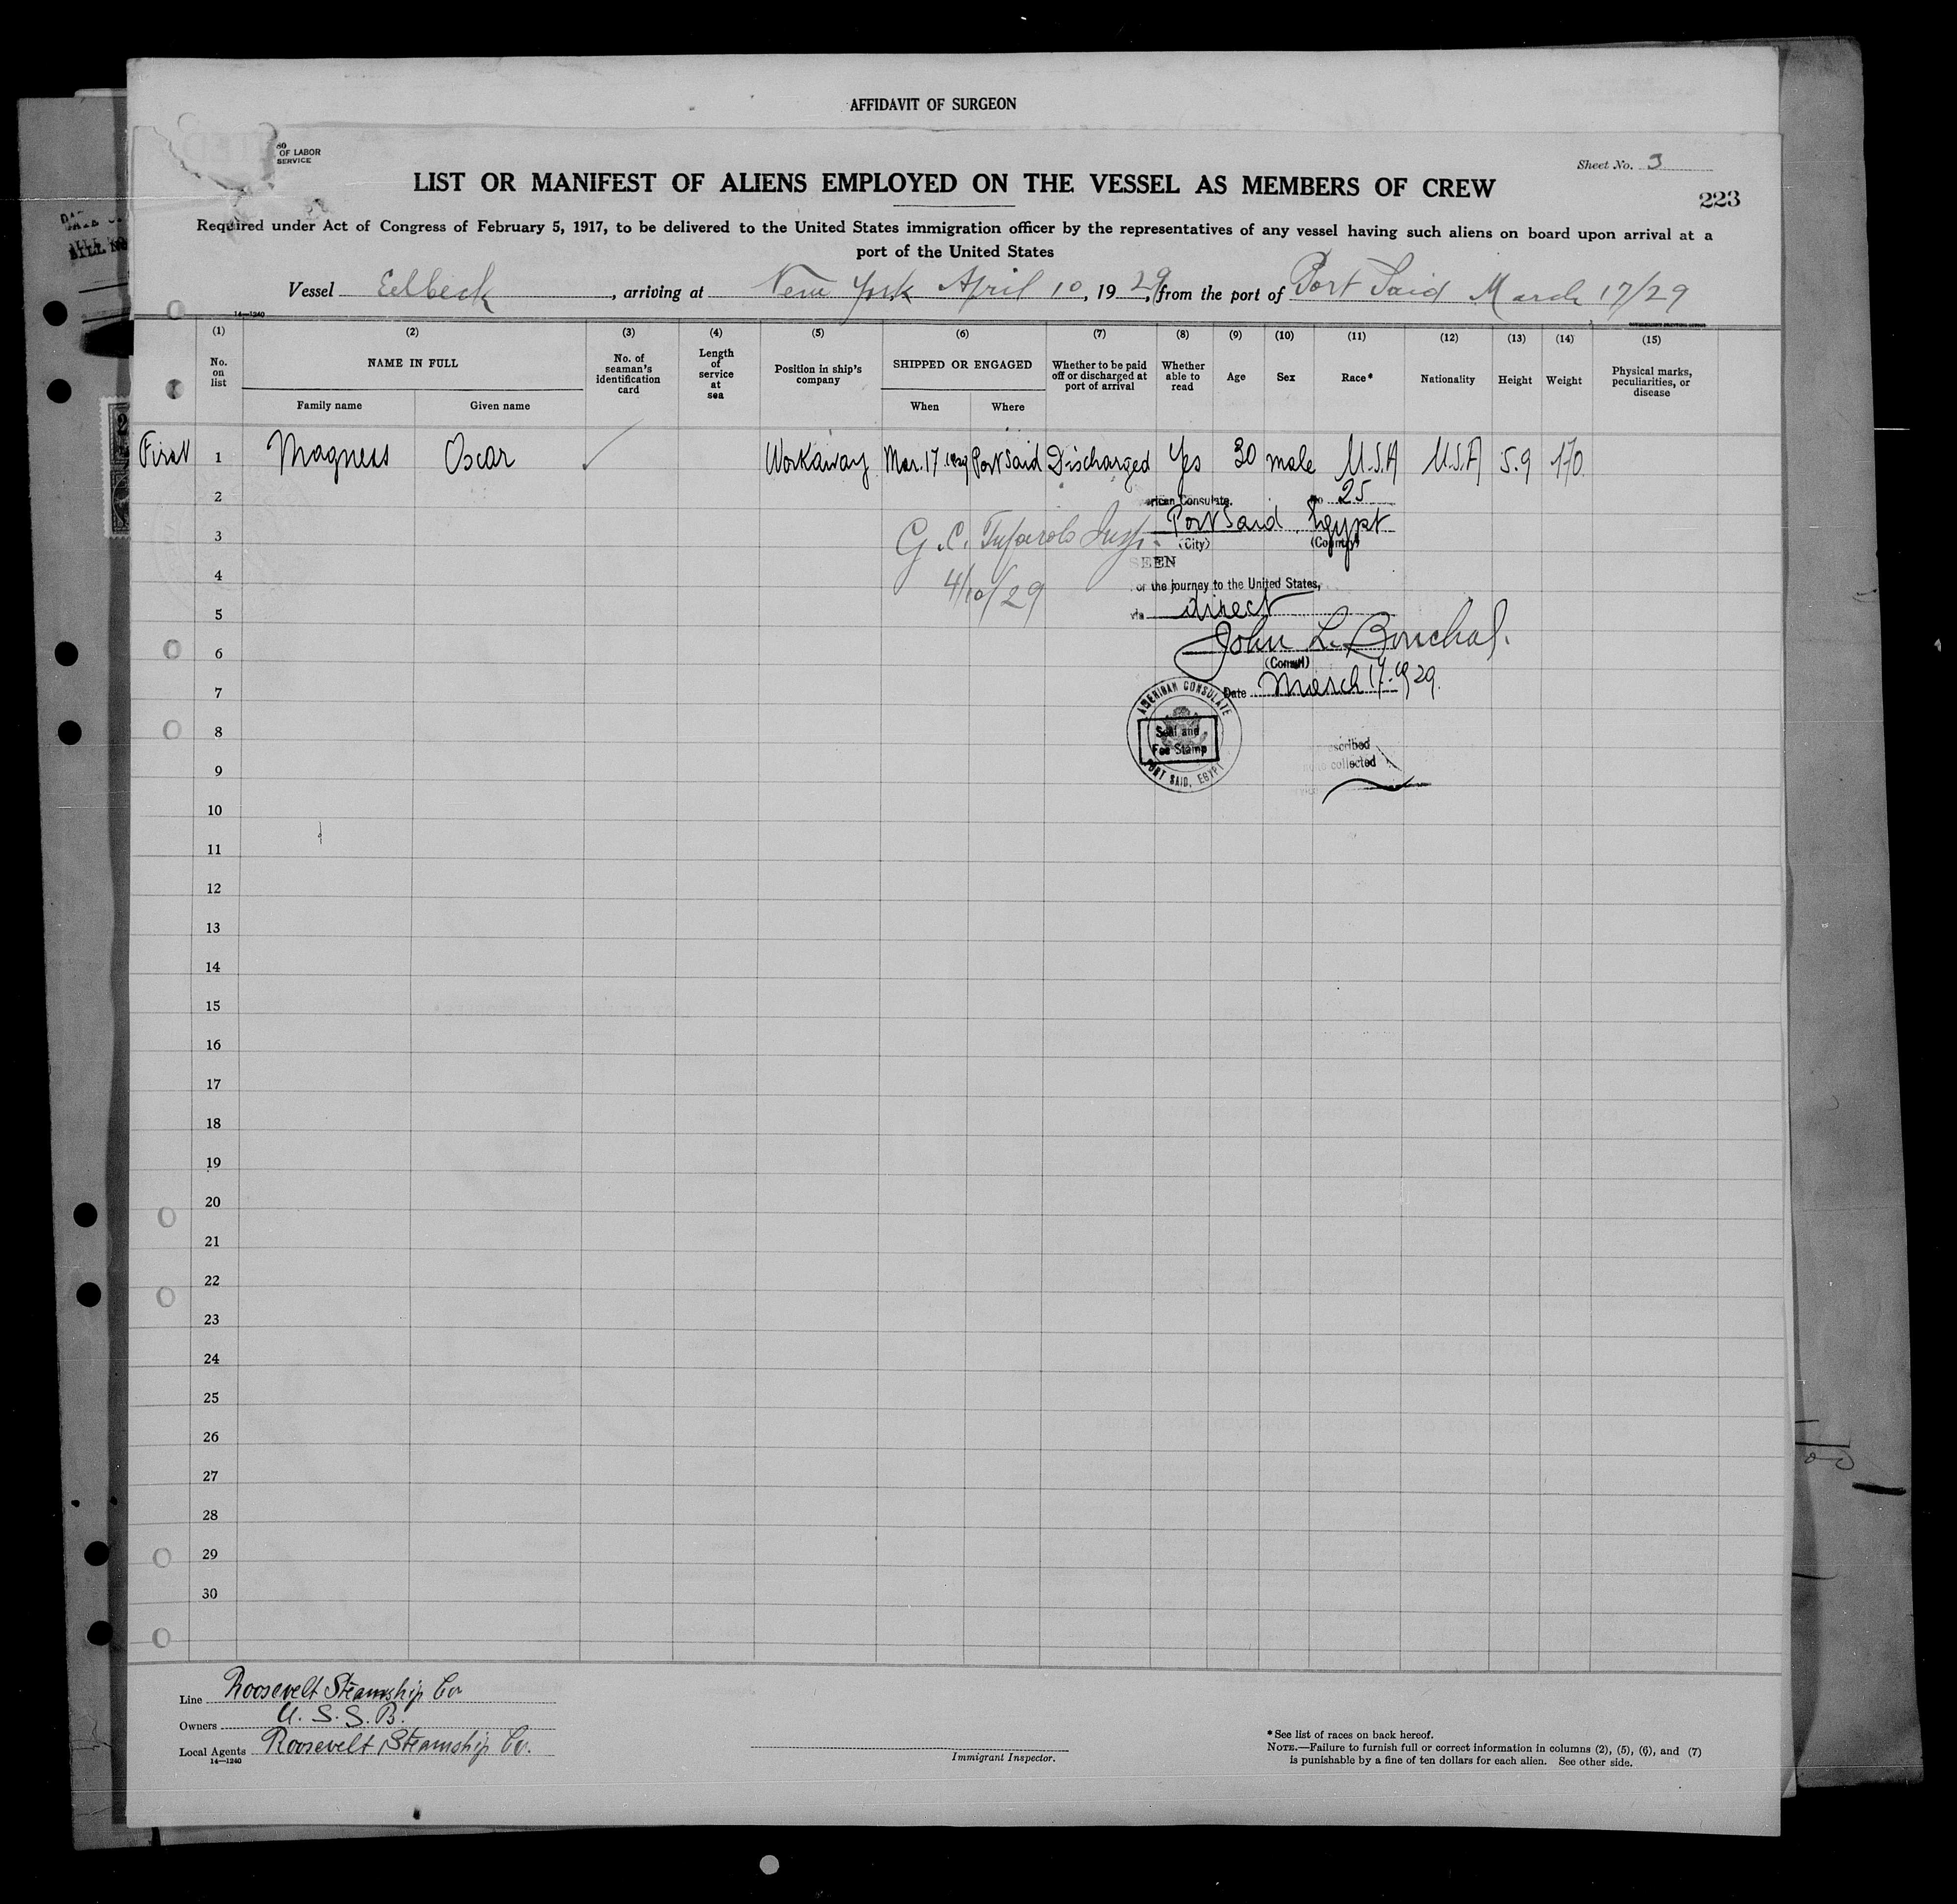 AFFIDAVIT OF SURGEON
OF LABOR
SERVICE
Sheet No. 3
LIST OR MANIFEST OF ALIENS EMPLOYED ON THE VESSEL AS MEMBERS OF CREW
223
Required under Act of Congress of February 5, 1917, to be delivered to the United States immigration officer by the representatives of any vessel having such aliens on board upon arrival at a
port of the United States
Vessel Eelbeck, arriving at New York April 10, 1929, from the port of Port Said March 17/29
14—1240
(1) (2) (3) (4) (5) (6) (7) (8) (9) (10) (11) (12) (13) (14) (15)
No. on list NAME IN FULL No. of seaman's identification card Length of service at sea Position in ship's company SHIPPED OR ENGAGED Whether to be paid off or discharged at port of arrival Whether able to read Age Sex Race* Nationality Height Weight Physical marks, peculiarities, or disease
Family name Given name When Where
First 1 Magness Oscar ✓ Workaway Mar. 17 1929 Port Said Discharged Yes 30 male U.S.A U.S.A 5.9 170
2
rican Consulate. No 25
3
G. C. Insp. Port Said, Egypt
(City) (Country)
SEEN
4
4/10/29
or the journey to the United States,
5
via direct
6
John L.
(Consul)
7
Date March 17. 1929.
AMERICAN CONSULATE
8
Seal and
Fee Stamp
PORT SAID, EGYPT
scribed
collected
9
10
11
12
13
14
15
16
17
18
19
20
21
22
23
24
25
26
27
28
29
30
Line Roosevelt Steamship Co
Owners U. S. S. B.
Local Agents Roosevelt Steamship Co.
14—1240
Immigrant Inspector.
* See list of races on back hereof.
NOTE.—Failure to furnish full or correct information in columns (2), (5), (6), and (7)
is punishable by a fine of ten dollars for each alien. See other side.